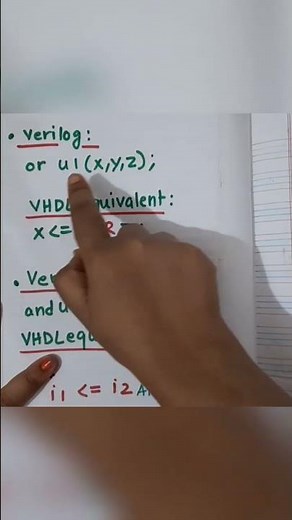 • Verilog:
or u1(x,y,z);
VHDL equivalent:
x<=
• Ver
and u
VHDL equ
i1 <= i2